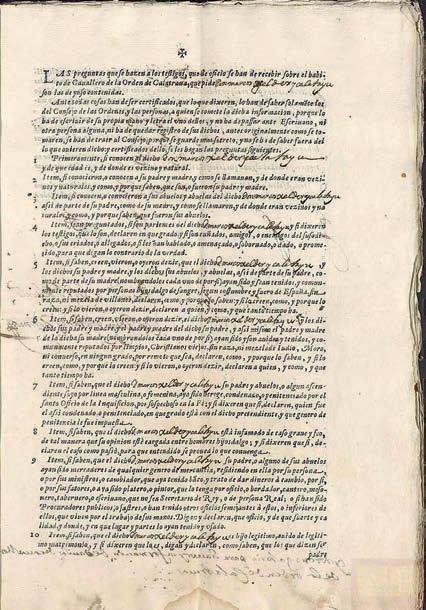 LAS preguntas que se hazen a los testigos, que de oficio se han de recebir sobre el habi-
to de Cauallero de la Orden de Calatraua, que pide don marcos
son las de yuso contenidas.
Ante todas cosas han de ser certificados, que lo que dixeren, lo han de saber solamente los
del Consejo de las Ordenes, y las personas, a quien se comete la dicha informacion, porque lo
ha de escriuir de su propia mano y letra el vno dellos, y no ha de passar ante Escriuano, ni
otra persona alguna, ni ha de quedar registro de sus dichos, antes originalmente como se to-
maren, se han de traer al Consejo, porque se guarde mas secreto, y no se pueda saber fuera del
lo que vuieren dicho; y certificados dello, se les hagan las preguntas siguientes.
1 Primeramente, si conocen al dicho don marcos
y de que edad es, y de donde es vezino y natural.
2 Item, si conocieron, o conocen a su padre y madre, como se llamaron, y de donde eran vezi-
nos y naturales, y como, y porque saben, que son, o fueron su padre y madre.
3 Item, si conocen, o conocieron a sus abuelos y abuelas del dicho don marcos
assi de parte de su padre, como de su madre, y como se llamaron, y de donde eran vezinos y na-
turales, y como, y porque saben que fueron sus abuelos.
4 Item, sean preguntados, si son parientes del dicho don marcos y si dixeren
los testigos, que lo son, declaren en que grado; y si son cuñados, amigos, o enemigos del susodi-
cho, o sus criados, o allegados, o si les han hablado, o amenaçado, o sobornado, o dado, o prome-
tido, para que digan lo contrario de la verdad.
5 Item, si saben, creen, vieron, o oyeron dezir, que el dicho don marcos
y los dichos su padre y madre, y los dichos sus abuelos, y abuelas, assi de parte de su padre, co-
mo de parte de su madre (nombrandolos cada vno de por si) ayan sido, y sean tenidos, y comun-
mente reputados por personas hijosdalgo de sangre, segun costumbre y fuero de España, sin
raça, ni mezcla de villano; declaren, como, y porque lo saben; y si lo creen, como, y porque lo
creen; y si lo vieron, o oyeron dezir, declaren a quien, y como, y que tanto tiempo ha.
6 Item, si saben, creen, vieron, o oyeron dezir, si el dicho don marcos y los di-
chos sus padre y madre, y el padre y madre del dicho su padre, y assi mismo el padre y madre
de la dicha su madre (nombrandolos cada vno de por si) ayan sido y son auidos y tenidos, y co-
munmente reputados por limpios, Christianos viejos, sin raza, ni mezcla de Iudio, Moro,
ni conuerso, en ningun grado, por remoto que sea, declaren, como, y porque lo saben, y si lo
creen, como, y porque lo creen y si lo vieron, o oyeron dezir, declaren a quien, y como, y que
tanto tiempo ha.
7 Item, si saben, que el dicho don marcos su padre y abuelos, o algun ascen-
diente suyo por linea masculina, o femenina, aya sido herege, condenado, o penitenciado por el
Santo Oficio de la Inquisicion, por sospechoso en la Fè; y si dixeren que si, declaren, quien fue
el assi condenado, o penitenciado, en que grado està con el dicho pretendiente, y que genero de
penitencia le fue impuesta.
8 Item, si saben, que el dicho don marcos està infamado de caso graue y feo,
de tal manera que su opinion està cargada entre hombres hijosdalgo; y si dixeren que si, de-
claren el caso como passò, para que entendido se prouea lo que conuenga.
9 Item, si saben, que el dicho don marcos su padre, o alguno de sus abuelos
ayan sido mercaderes de qualquier genero de mercancia, residiendo en ella por su persona,
o por sus ministros, o cambiador, que aya tenido banco, y trato de dar dineros à cambio, por si,
o por sus factores, o aya sido platero, o pintor, que lo tenga por oficio, o bordador, cantero, meso-
nero, tabernero, o escriuano, que no sea Secretario de Rey, o de persona Real; o si han sido
Procuradores publicos, o sastres, o han tenido otros oficios semejantes à estos, o inferiores de
ellos, que viuen por el trabajo de sus manos. Digan y declaren, que oficio, y de que suerte y ca-
lidad, y donde, y en que lugar y partes lo ayan tenido y vsado.
10 Item, si saben, que el dicho don marcos es hijo legitimo, auido de legiti-
mo matrimonio, y si dixeren que lo es, digan y declaren, como saben, que los que dizen ser
padre